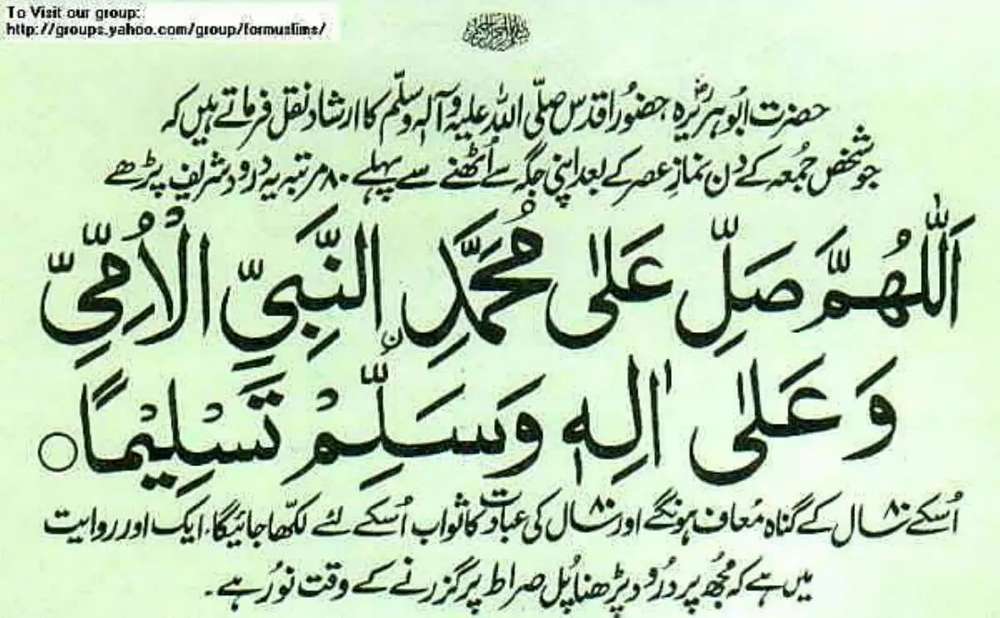 To Visit our group:
http://groups.yahoo.com/group/formuslims/
حضرت ابُوہریرہؓ، حضورُ اقدس صلّی اللہ علیہ وآلہٖ وسلّم کا ارشاد نقل فرماتے ہیں کہ
جو شخص جمُعہ کے دن نمازِ عصر کے بعد اپنی جگہ سے اُٹھنے سے پہلے ۸۰ مرتبہ یہ درود شریف پڑھے
اَللّٰهُمَّ صَلِّ عَلٰى مُحَمَّدِ ࣙالنَّبِيِّ الْاُمِّيِّ
وَعَلٰى اٰلِهٖ وَسَلِّمْ تَسْلِيْمًا ○
اُسکے ۸۰ سال کے گناہ مُعاف ہونگے اور ۸۰ سال کی عبادت کا ثواب اُسکے لئے لکھّا جائیگا، ایک اور روایت
میں ہے کہ مُجھ پر دُرود پڑھنا پُل صراط پر گزرنے کے وقت نُور ہے۔